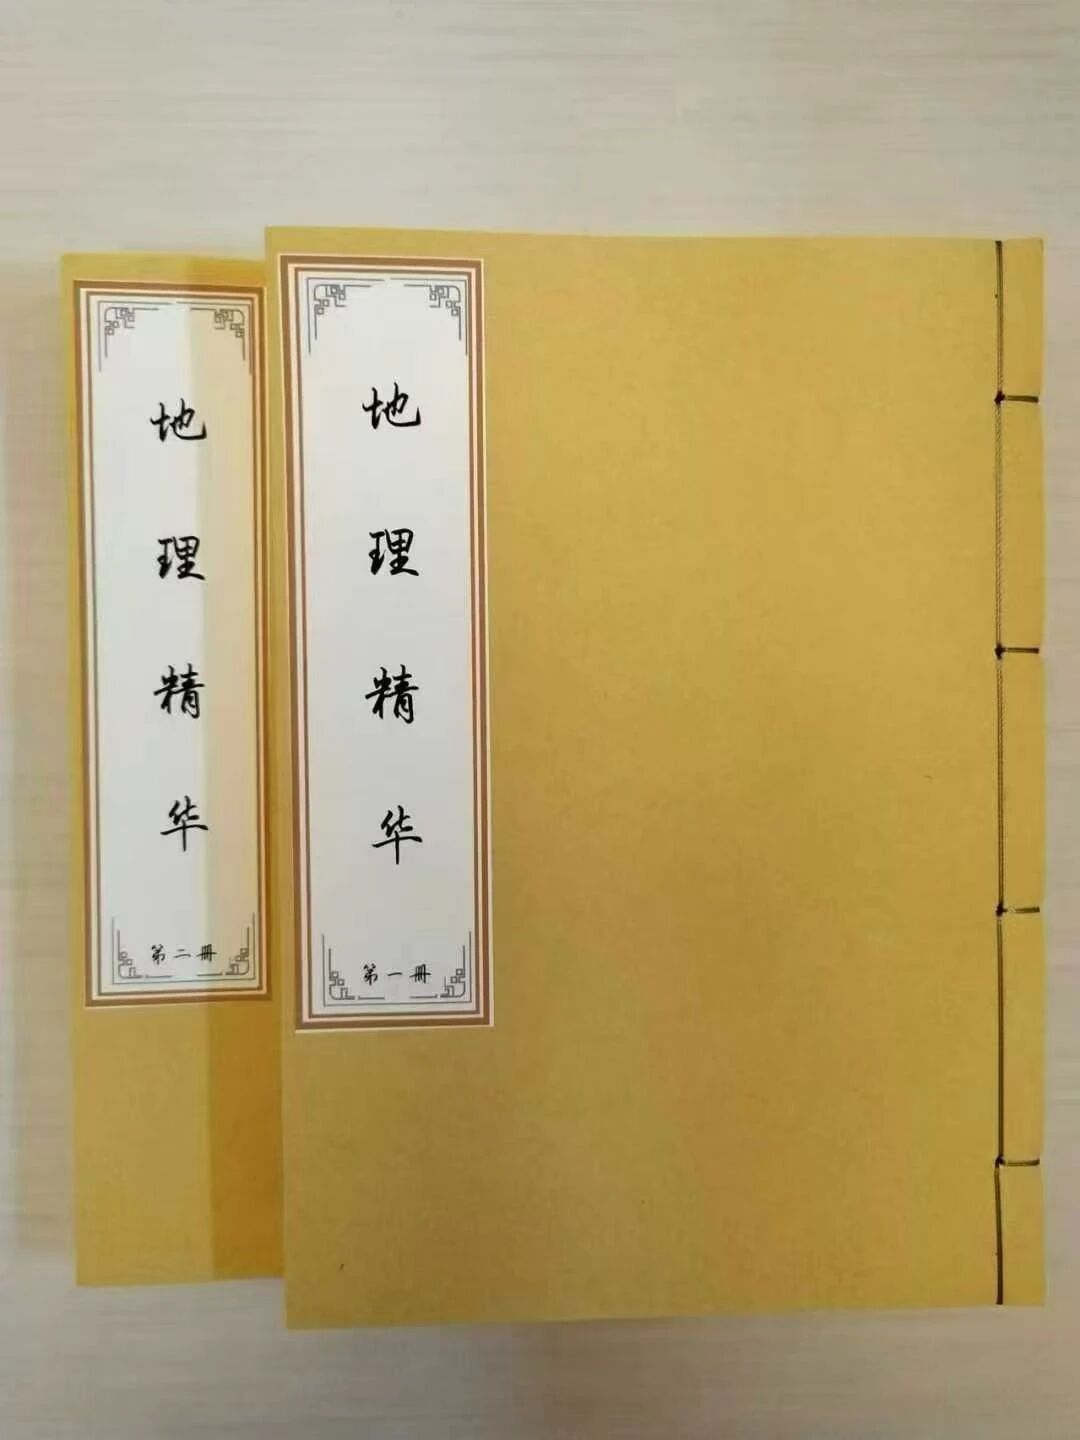 地理精华
第二册
地理精华
第一册